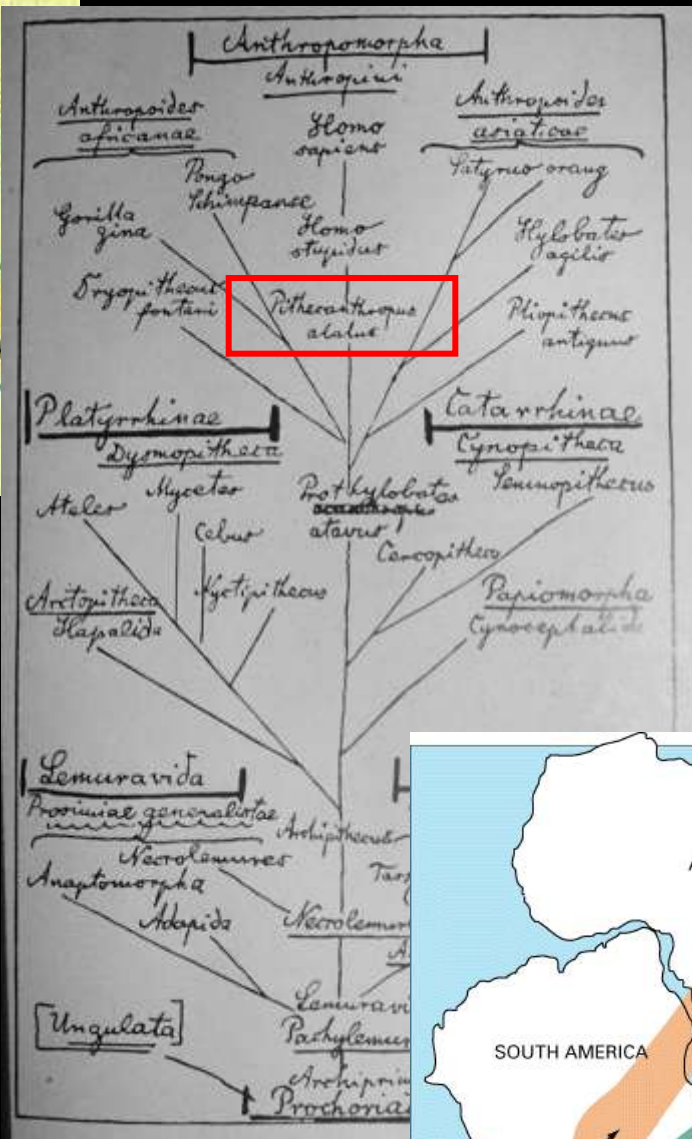 Anthropomorpha
Anthropini
Anthropoides
africanae
Homo
sapiens
Anthropoides
asiaticae
Pongo
Schimpanse
Satyrus orang
Gorilla
gina
Homo
stupidus
Hylobates
agilis
Dryopithecus
fontani
Pithecanthropus
alalus
Pliopithecus
antiquus
Platyrrhinae
Catarrhinae
Dysmopitheca
Cynopitheca
Mycetes
Ateles
Prothylobates
atavus
Semnopithecus
Cebus
Cercopithecus
Arctopitheca
Hapalida
Nyctipithecus
Papiomorpha
Cynocephalida
Lemuravida
Prosimiae generalistae
Archipithecus
Necrolemures
Tars
Anaptomorpha
Adapida
Necrolemur
Lemuravi
[Ungulata]
Pachylemur
Archiprim
Prochoria
SOUTH AMERICA